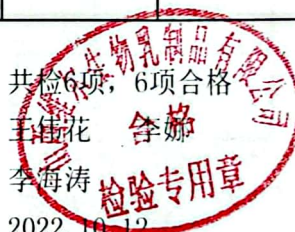 共检6项，6项合格
王佳花 李娜
李海涛
2022 10 12
生物乳制品有限公司
合格
检验专用章